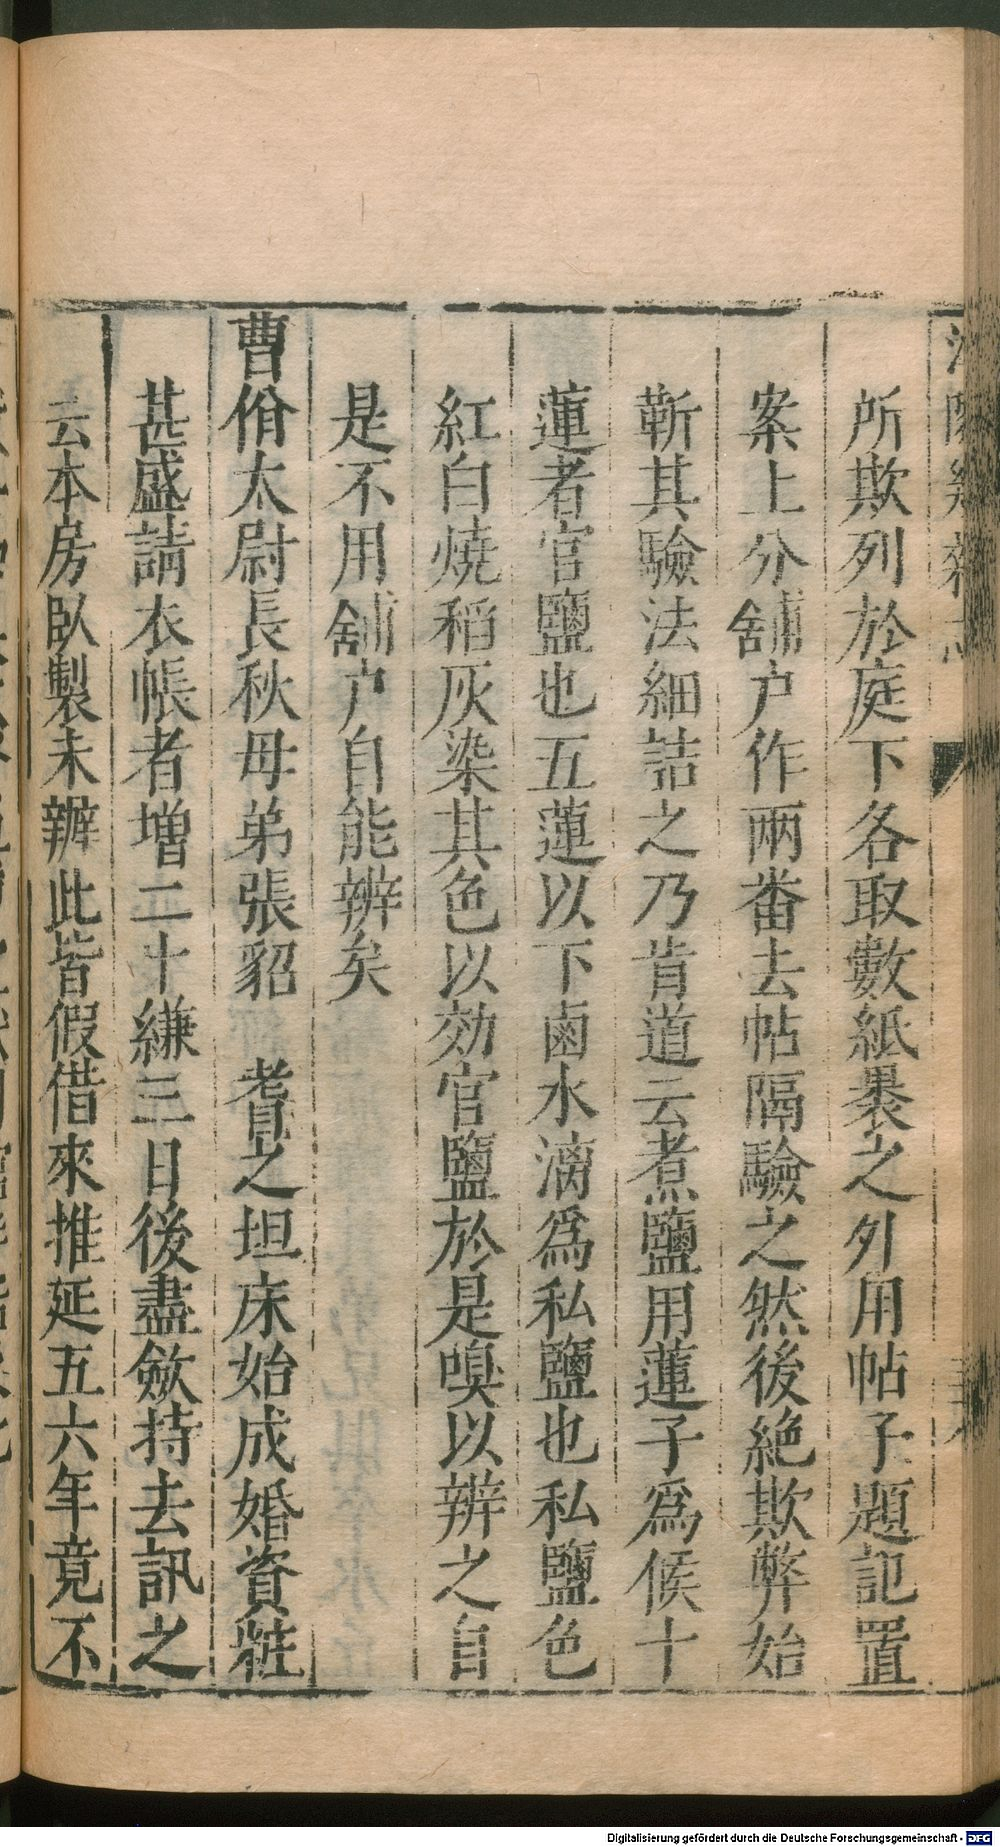 所欺列於庭下各取數紙裹之外用帖子題記置
案上分舖户作兩番去帖隔驗之然後絶欺弊始
蘄其驗法細詰之乃肯道云煮鹽用蓮子爲候十
蓮者官鹽也五蓮以下鹵水漓爲私鹽也私鹽色
紅白燒稻灰染其色以効官鹽於是嗅以辨之自
是不用舖户自能辨矣
曹佾太尉長秋母弟張貂 耆之坦床始成婚資粧
甚盛請衣帳者增二十縑三日後盡斂持去訊之
云本房臥製未辦此皆假借來推延五六年竟不
Digitalisierung gefördert durch die Deutsche Forschungsgemeinschaft - DFG